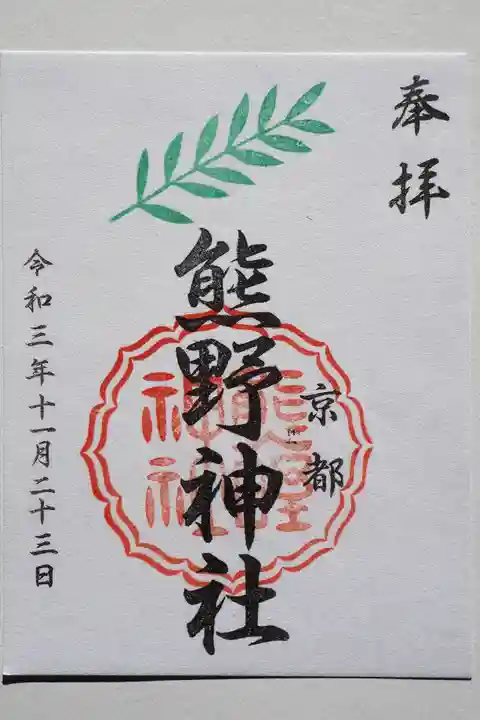 奉拝
京都
熊野神社
熊野
神社
令和三年十一月二十三日